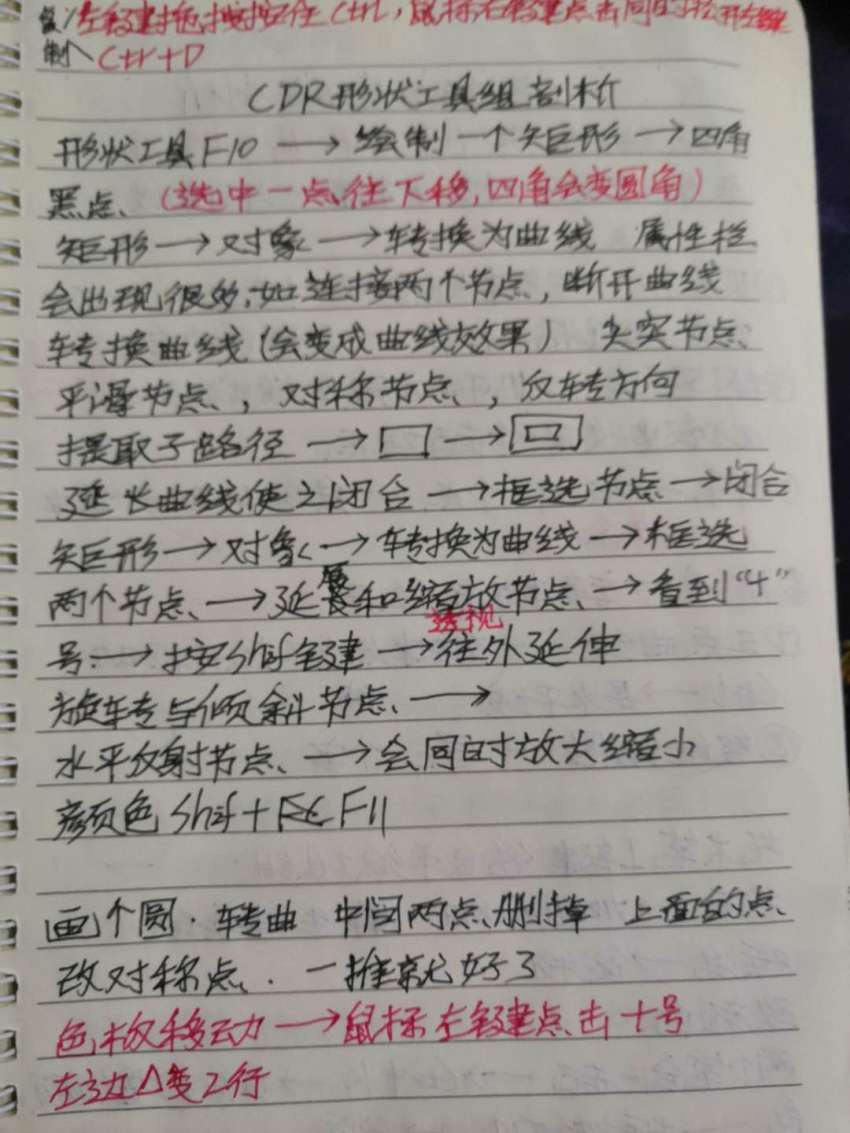 复 左键拖拽按住Ctrl，鼠标右键点击同时松开左键
制 Ctr+D
CDR形状工具组剖析
形状工具F10→绘制一个矩形→四角
黑点、(选中一点往下移,四角会变圆角)
矩形→对象→转换为曲线 属性栏
会出现很多,如连接两个节点,断开曲线
转换曲线(会变成曲线效果) 尖突节点、
平滑节点、,对称节点、,反转方向
提取子路径→□→回
延长曲线使之闭合→框选节点→闭合
矩形→对象→转换为曲线→框选
两个节点、→延展和缩放节点、→看到"4"
透视
号.→按shif键→往外延伸
旋转与倾斜节点、→
水平反射节点、→会同时放大缩小
颜色shif+F11
画个圆.转曲 中间两点、删掉 上面的点、
改对称点、.一推就好了
色板移动→鼠标左键点击十号
左边△变2行